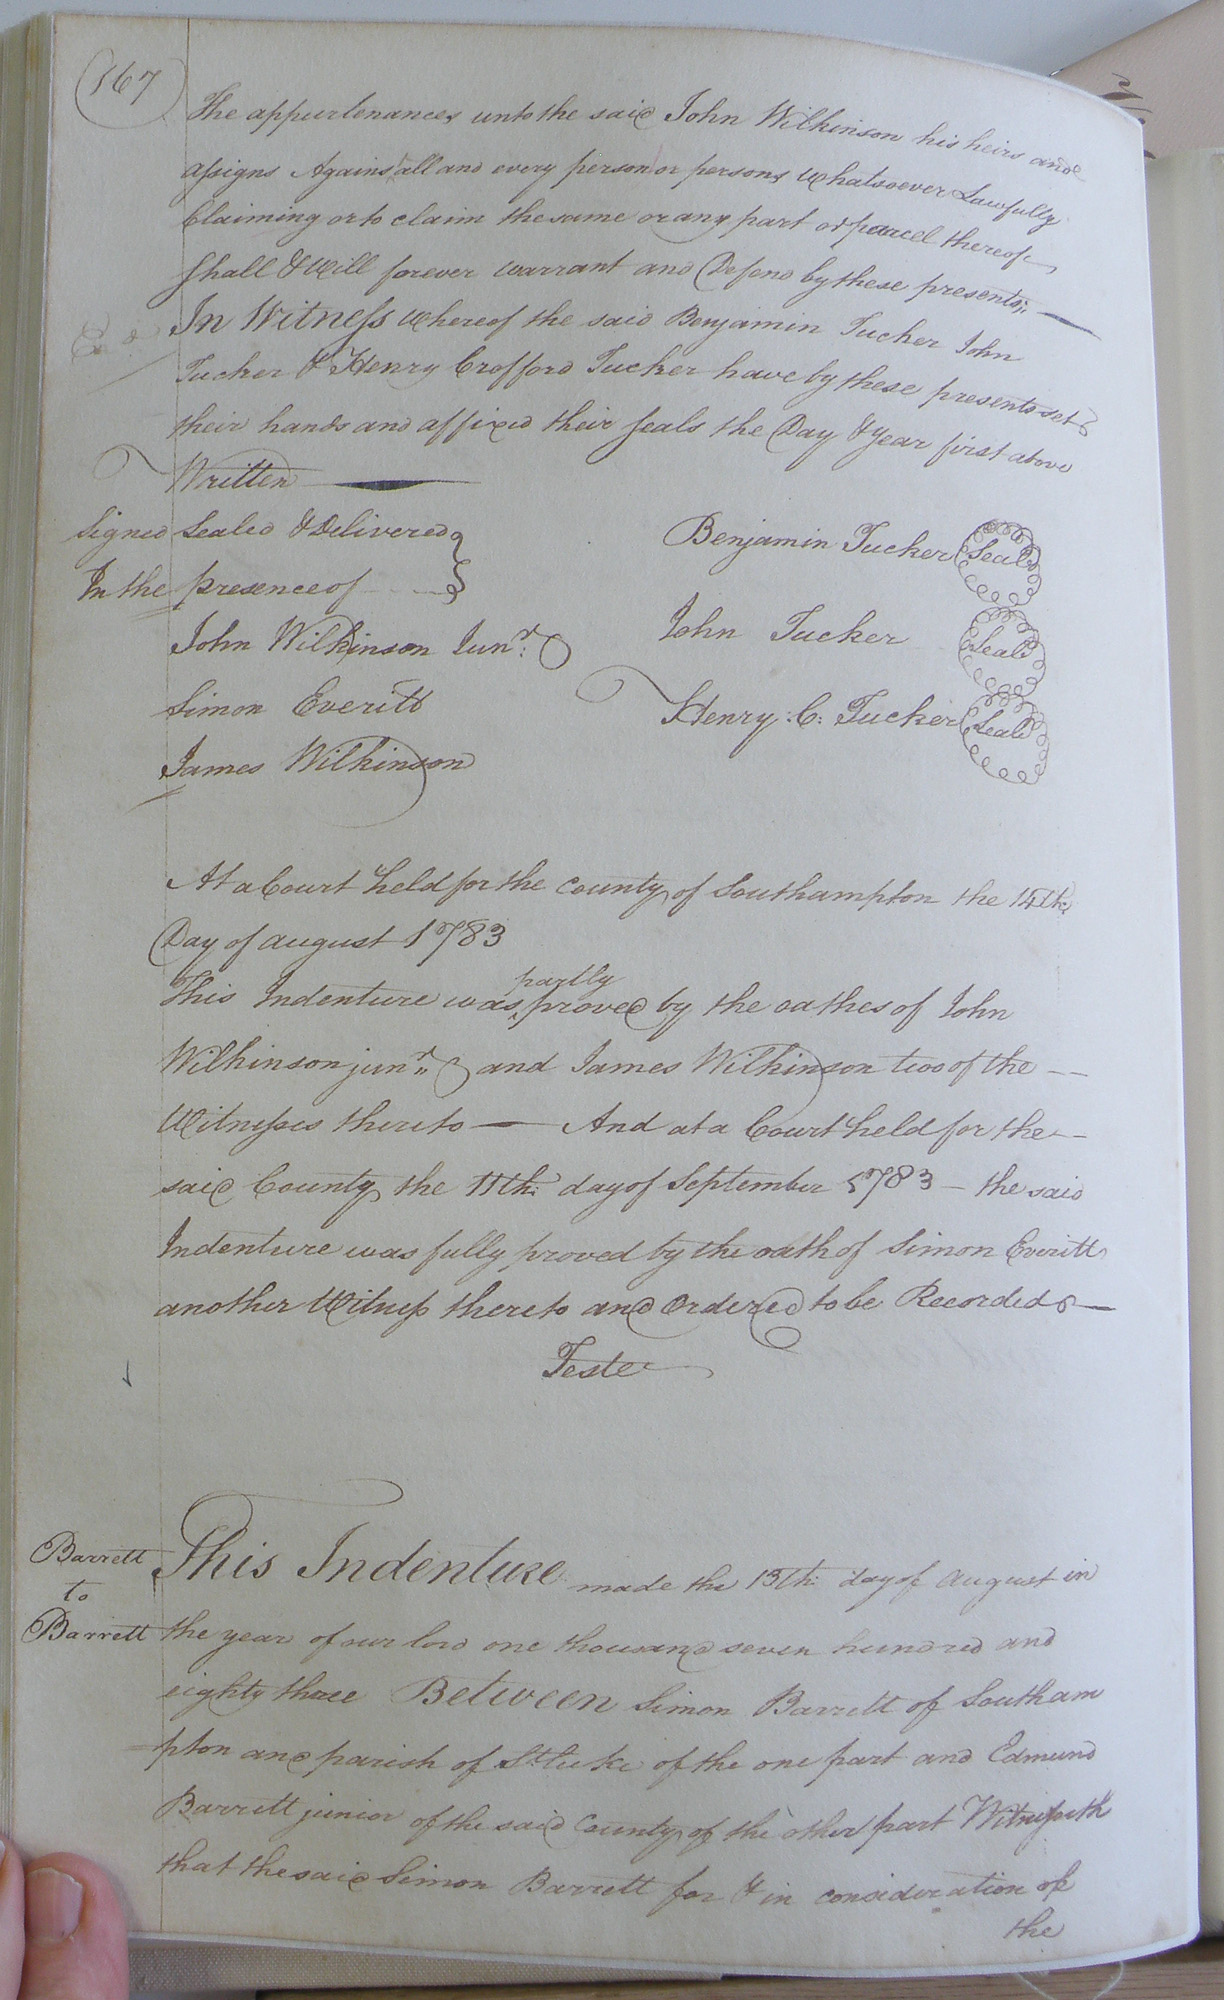 167
The appurtenances unto the said John Wilkinson his heirs and
assigns Against all and every person or persons whatsoever Lawfully
Claiming or to claim the same or any part or parcel thereof
Shall & Will forever warrant and Defend by these presents
In Witness Whereof the said Benjamin Tucker John
Tucker & Henry Crofford Tucker have by these presents set
their hands and affixed their seals the Day & Year first above
Written
Signed Sealed & Delivered
In the presence of
John Wilkinson Junr:
Simon Everitt
James Wilkinson
Benjamin Tucker Seal
John Tucker Seal
Henry: C: Tucker Seal
At a Court held for the County of Southampton the 14th:
Day of august 1783
This Indenture was partly proved by the oathes of John
Wilkinson junr and James Wilkinson two of the
Witnesses thereto — And at a Court held for the
said County the 11th: day of September 1783 – the said
Indenture was fully proved by the oath of Simon Everitt
another Witness thereto and Ordered to be Recorded
Teste
Barrett
to
Barrett
This Indenture made the 13th: day of august in
the year of our lord one thousand seven hundred and
eighty three Between Simon Barrett of Southam
pton and parish of St. Luke of the one part and Edmund
Barrett junior of the said County of the other part Witnesseth
that the said Simon Barrett for & in consideration of
the